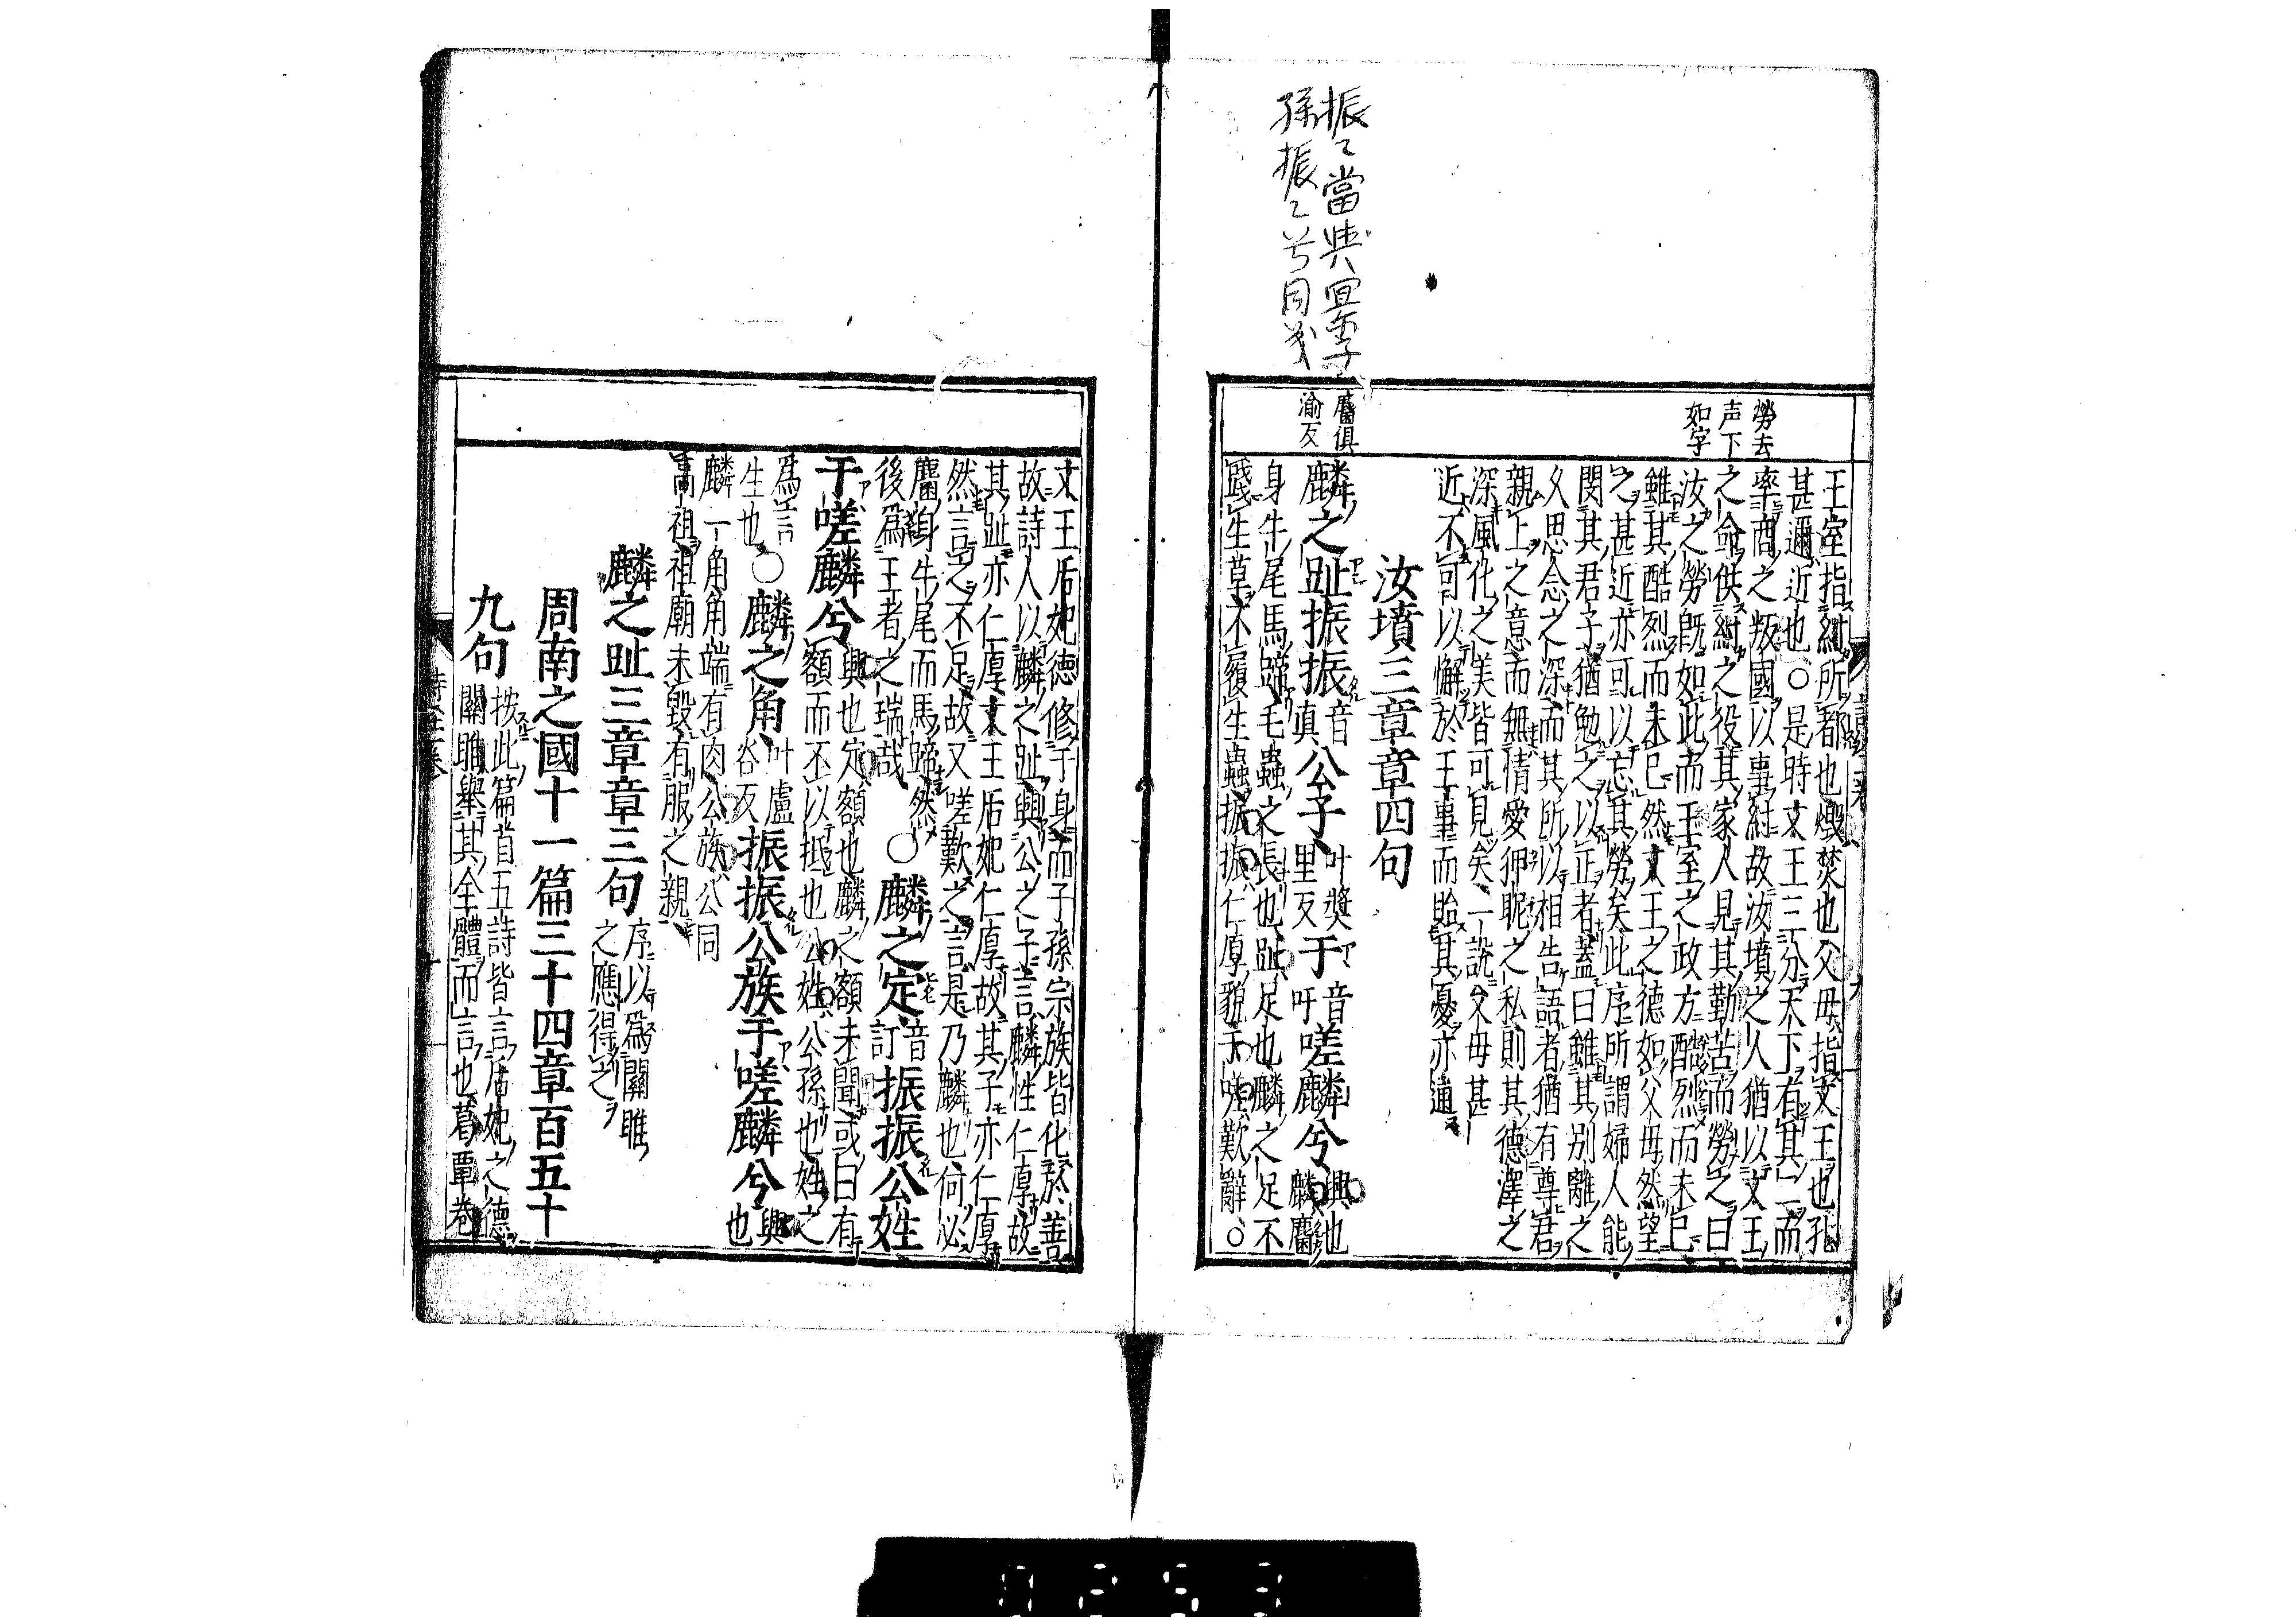 振々當與宜爾子
孫振々兮同義
勞去
声下
如字
麕俱
渝反
王室指紂所都也燬焚也父母指文王也孔
甚邇近也○是時文王三分天下有其二而
率商之叛國以事紂故汝墳之人猶以文王
之命供紂之役其家人見其勤苦而勞之曰
汝之勞既如此而王室之政方酷烈而未已
雖其酷烈而未已然文王之德如父母然望
之甚近亦可以忘其勞矣此序所謂婦人能
閔其君子猶勉之以正者蓋曰雖其別離之
久思念之深而其所以相告語者猶有尊君
親上之意而無情愛狎昵之私則其德澤之
深風化之美皆可見矣一說父母甚
近不可以懈於王事而貽其憂亦通
汝墳三章章四句
麟之趾振振音真公子叶獎里反于音吁嗟麟兮興也麟麕
身牛尾馬蹄毛蟲之長也趾足也麟之足不
踐生草不履生蟲振振仁厚貌于嗟歎辭○
文王后妃德修于身而子孫宗族皆化於善
故詩人以麟之趾興公之子言麟性仁厚故
其趾亦仁厚文王后妃仁厚故其子亦仁厚
然言之不足故又嗟歎之言是乃麟也何必
麕身牛尾而馬蹄然
後爲王者之瑞哉○麟之定音訂振振公姓
于嗟麟兮興也定額也麟之額未聞或曰有額而不以抵也公姓公孫也姓之
爲言
生也○麟之角叶盧谷反振振公族于嗟麟兮興也
麟一角角端有肉公族公同
高祖祖廟未毀有服之親
麟之趾三章章三句序以爲關雎之應得之
周南之國十一篇三十四章百五十
九句按此篇首五詩皆言后妃之德關雎舉其全體而言也葛覃卷